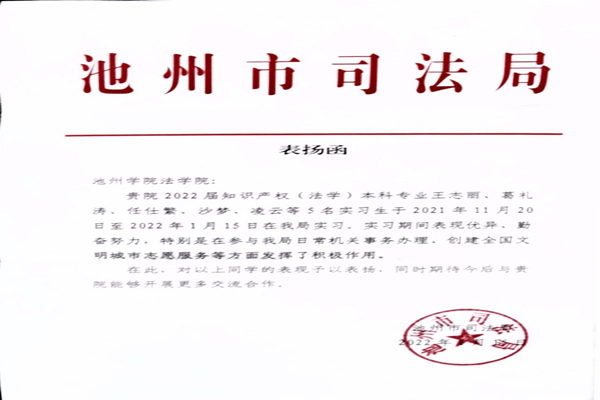 池州市司法局
表扬函
池州学院法学院：
贵院 2022 届知识产权（法学）本科专业王志丽、葛礼
涛、任仕繁、沙梦、凌云等 5 名实习生于 2021 年 11 月 20
日至 2022 年 1 月 15 日在我局实习。实习期间表现优异、勤
奋努力，特别是在参与我局日常机关事务办理，创建全国文
明城市志愿服务等方面发挥了积极作用。
在此，对以上同学的表现予以表扬，同时期待今后与贵
院能够开展更多交流合作。
池州市司法局
2022 年 月 日